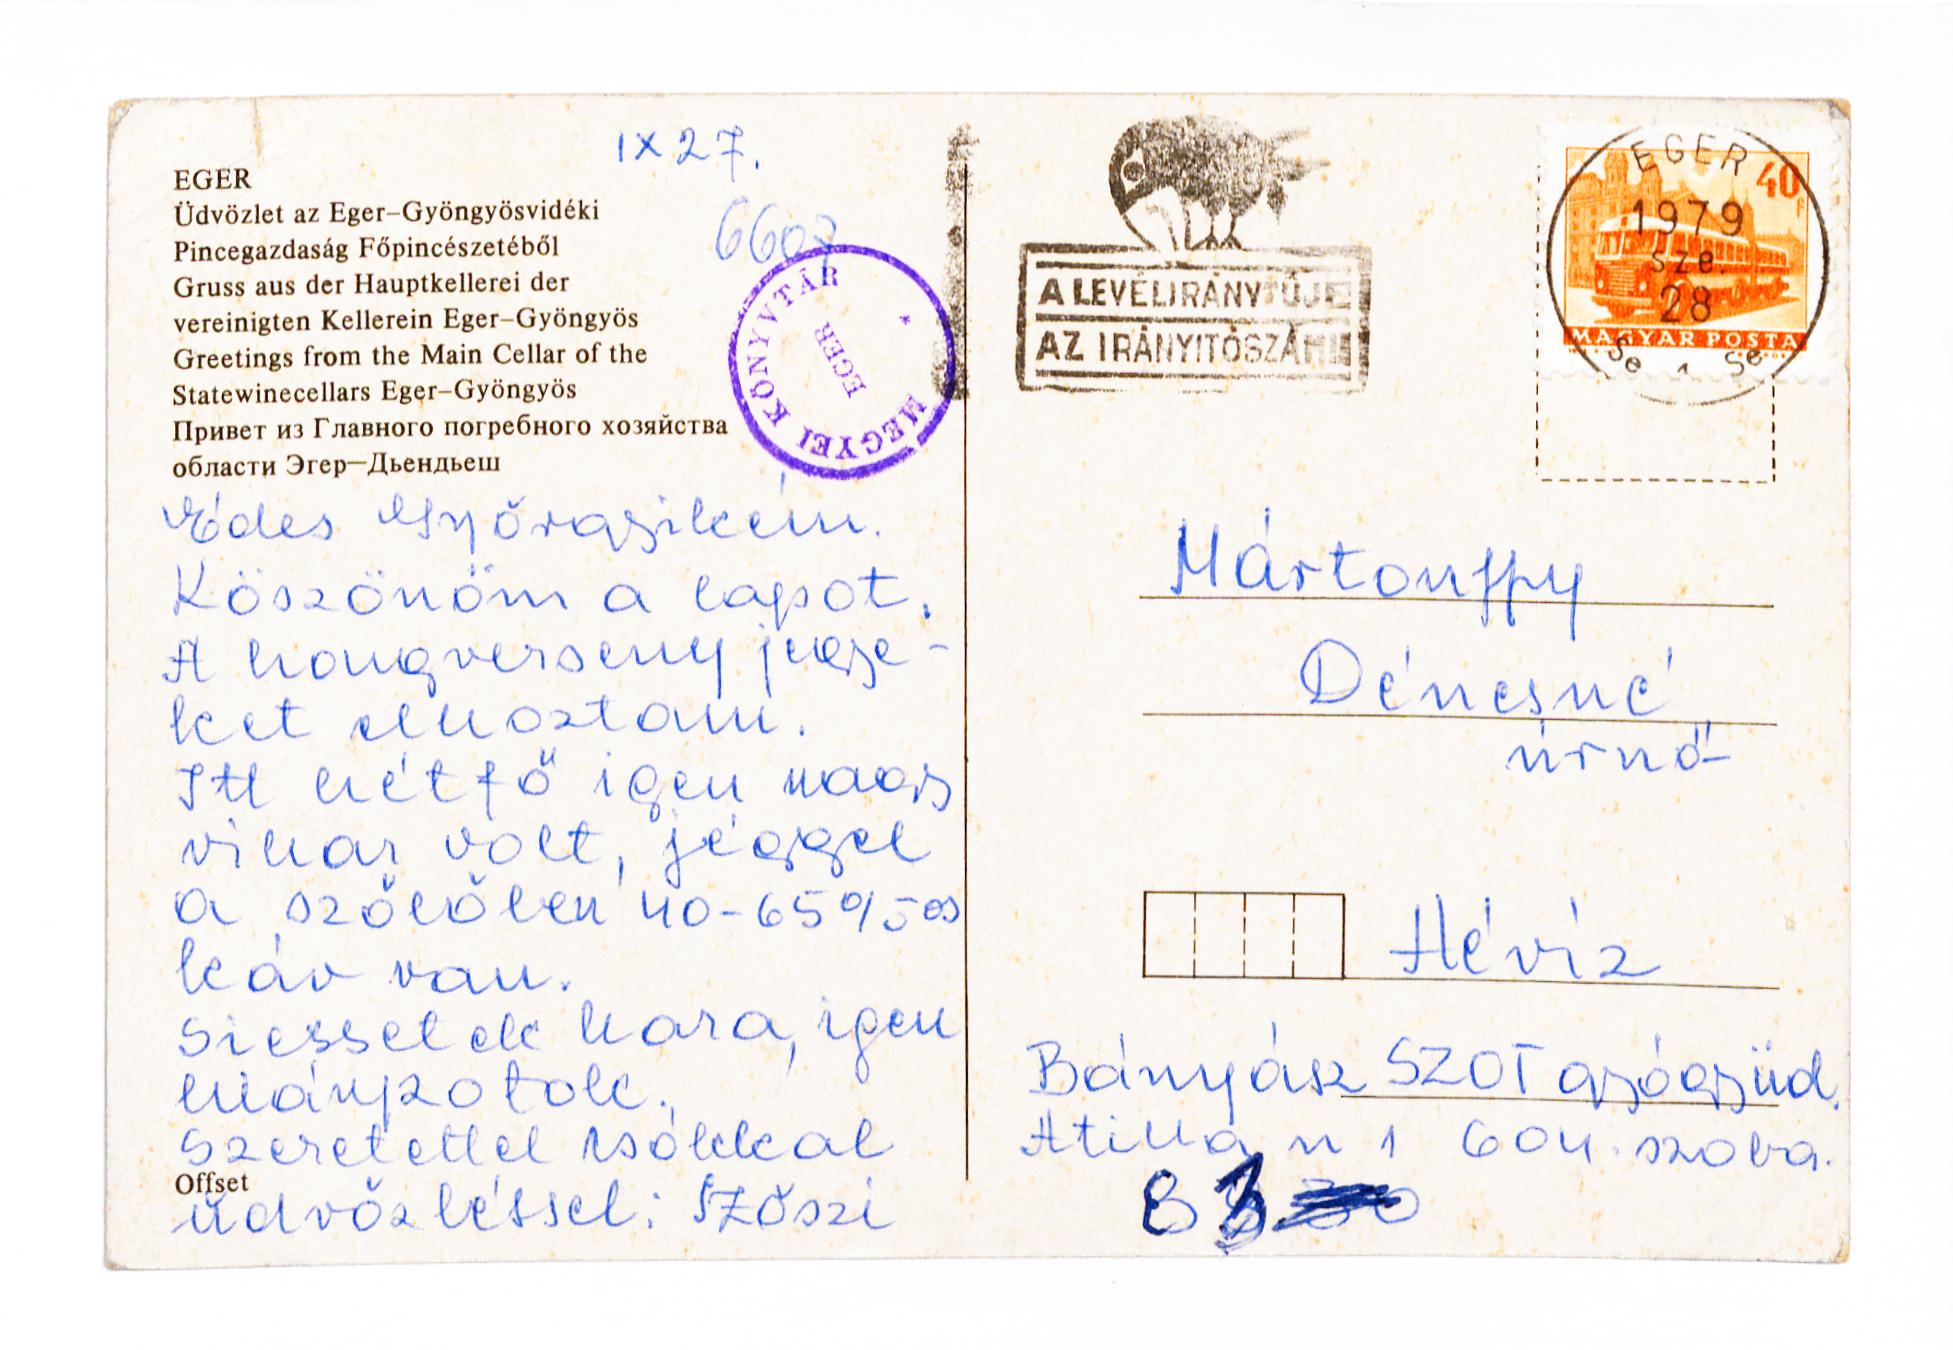 IX 27.
6607
EGER
Üdvözlet az Eger–Gyöngyösvidéki
Pincegazdaság Főpincészetéből
Gruss aus der Hauptkellerei der
vereinigten Kellerein Eger–Gyöngyös
Greetings from the Main Cellar of the
Statewinecellars Eger–Gyöngyös
Привет из Главного погребного хозяйства
области Эгер—Дьендьеш
MEGYEI KÖNYVTÁR
EGER
*
Édes Györgyikém.
Köszönöm a lapot.
A hangverseny jegye-
ket elhoztam.
Itt hétfő igen nagy
vihar volt, jéggel
a szőlőben 40-65%os
kár van.
Siessetek haza, igen
hiányzotok.
Szeretettel csókkal
Offset
üdvözléssel: Szőszi
A LEVÉL IRÁNYTŰJE
AZ IRÁNYÍTÓSZÁM!
40f
MAGYAR POSTA
EGER
1979
sze.
28
Se 1 Se
Mártonffy
Dénesné
úrnő
Hévíz
Bányász SZOT gyógyüd.
Atilla u 1 604. szoba.